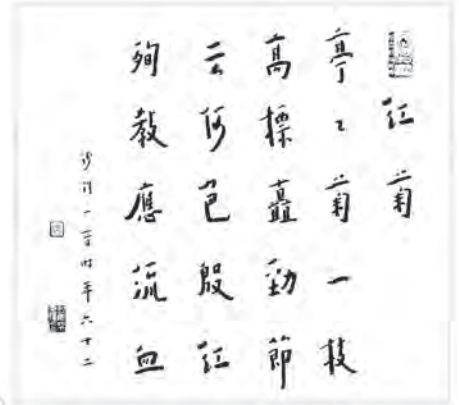 紅菊
亭〻菊一枝
高標矗勁節
云何色殷紅
殉教應流血
沙門一音時年六十二